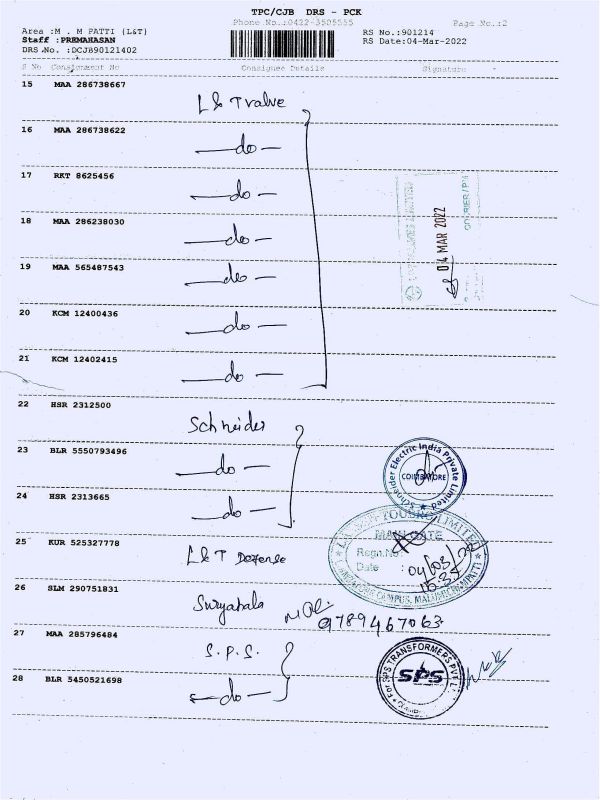 TPC/CJB DRS - PCK
Phone No.:0422-3505555 Page No.:2
Area :M . M PATTI (L&T) RS No.:901214
Staff :PREMAHASAN RS Date:04-Mar-2022
DRS No. :DCJB90121402
S No Consignment No Consignee Details Signature
15 MAA 286738667 L&T valve
16 MAA 286738622 —do—
17 RKT 8625456 —do—
18 MAA 286238030 —do—
19 MAA 565487543 —do—
20 KCM 12400436 —do—
21 KCM 12402415 —do—
04 MAR 2022
COURIER/
22 HSR 2312500 Schneider
23 BLR 5550793496 —do—
24 HSR 2313665 —do—
Schneider Electric India Private Limited
COIMBATORE
25 KUR 525327778 L&T Defense
LIMITED
MAIN GATE
Regn.No:
Date : 04/03/22
16:35
CAMPUS, MALUMICHAMPATTI
26 SLM 290751831 Suryabala
9789467063
27 MAA 285796484 S.P.S.
28 BLR 5450521698 —do—
For SPS TRANSFORMERS PVT L
SPS